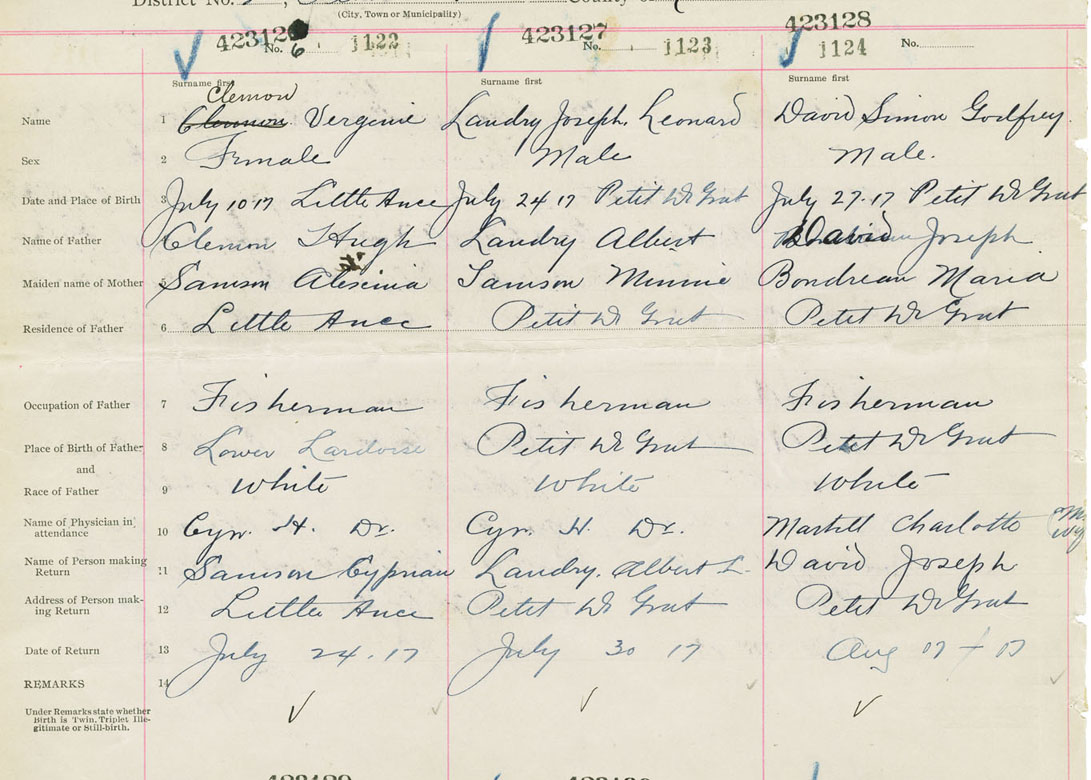 District No.
County of
(City, Town or Municipality)
423126 No. 1122
423127 No. 1123
423128 1124 No.
Surname first Surname first Surname first
Clemon
Name 1 Clemon Verginie Landry Joseph. Leonard David Simon Godfrey
Sex 2 Female Male Male.
Date and Place of Birth 3 July 10 17 Little Ance July 24 17 Petit De Grat July 27.17 Petit De Grat
Name of Father Clemon Hugh Landry Albert David Joseph
Maiden name of Mother 5 Samson Samson Minnie Bondreau Maria
Residence of Father 6 Little Ance Petit De Grat Petit De Grat
Occupation of Father 7 Fisherman Fisherman Fisherman
Place of Birth of Father 8 Lower Lardoise Petit De Grat Petit De Grat
and
Race of Father 9 White White White
Name of Physician in attendance 10 Cyr. H. Dr. Cyr. H. Dr. Martell Charlotte
Name of Person making Return 11 Samson Cyprian Landry. Albert L. David Joseph
Address of Person making Return 12 Little Ance Petit De Grat Petit De Grat
Date of Return 13 July 24.17 July 30 17 Aug 17 - 17
REMARKS 14
Under Remarks state whether
Birth is Twin, Triplet Ille-
gitimate or Still-birth.